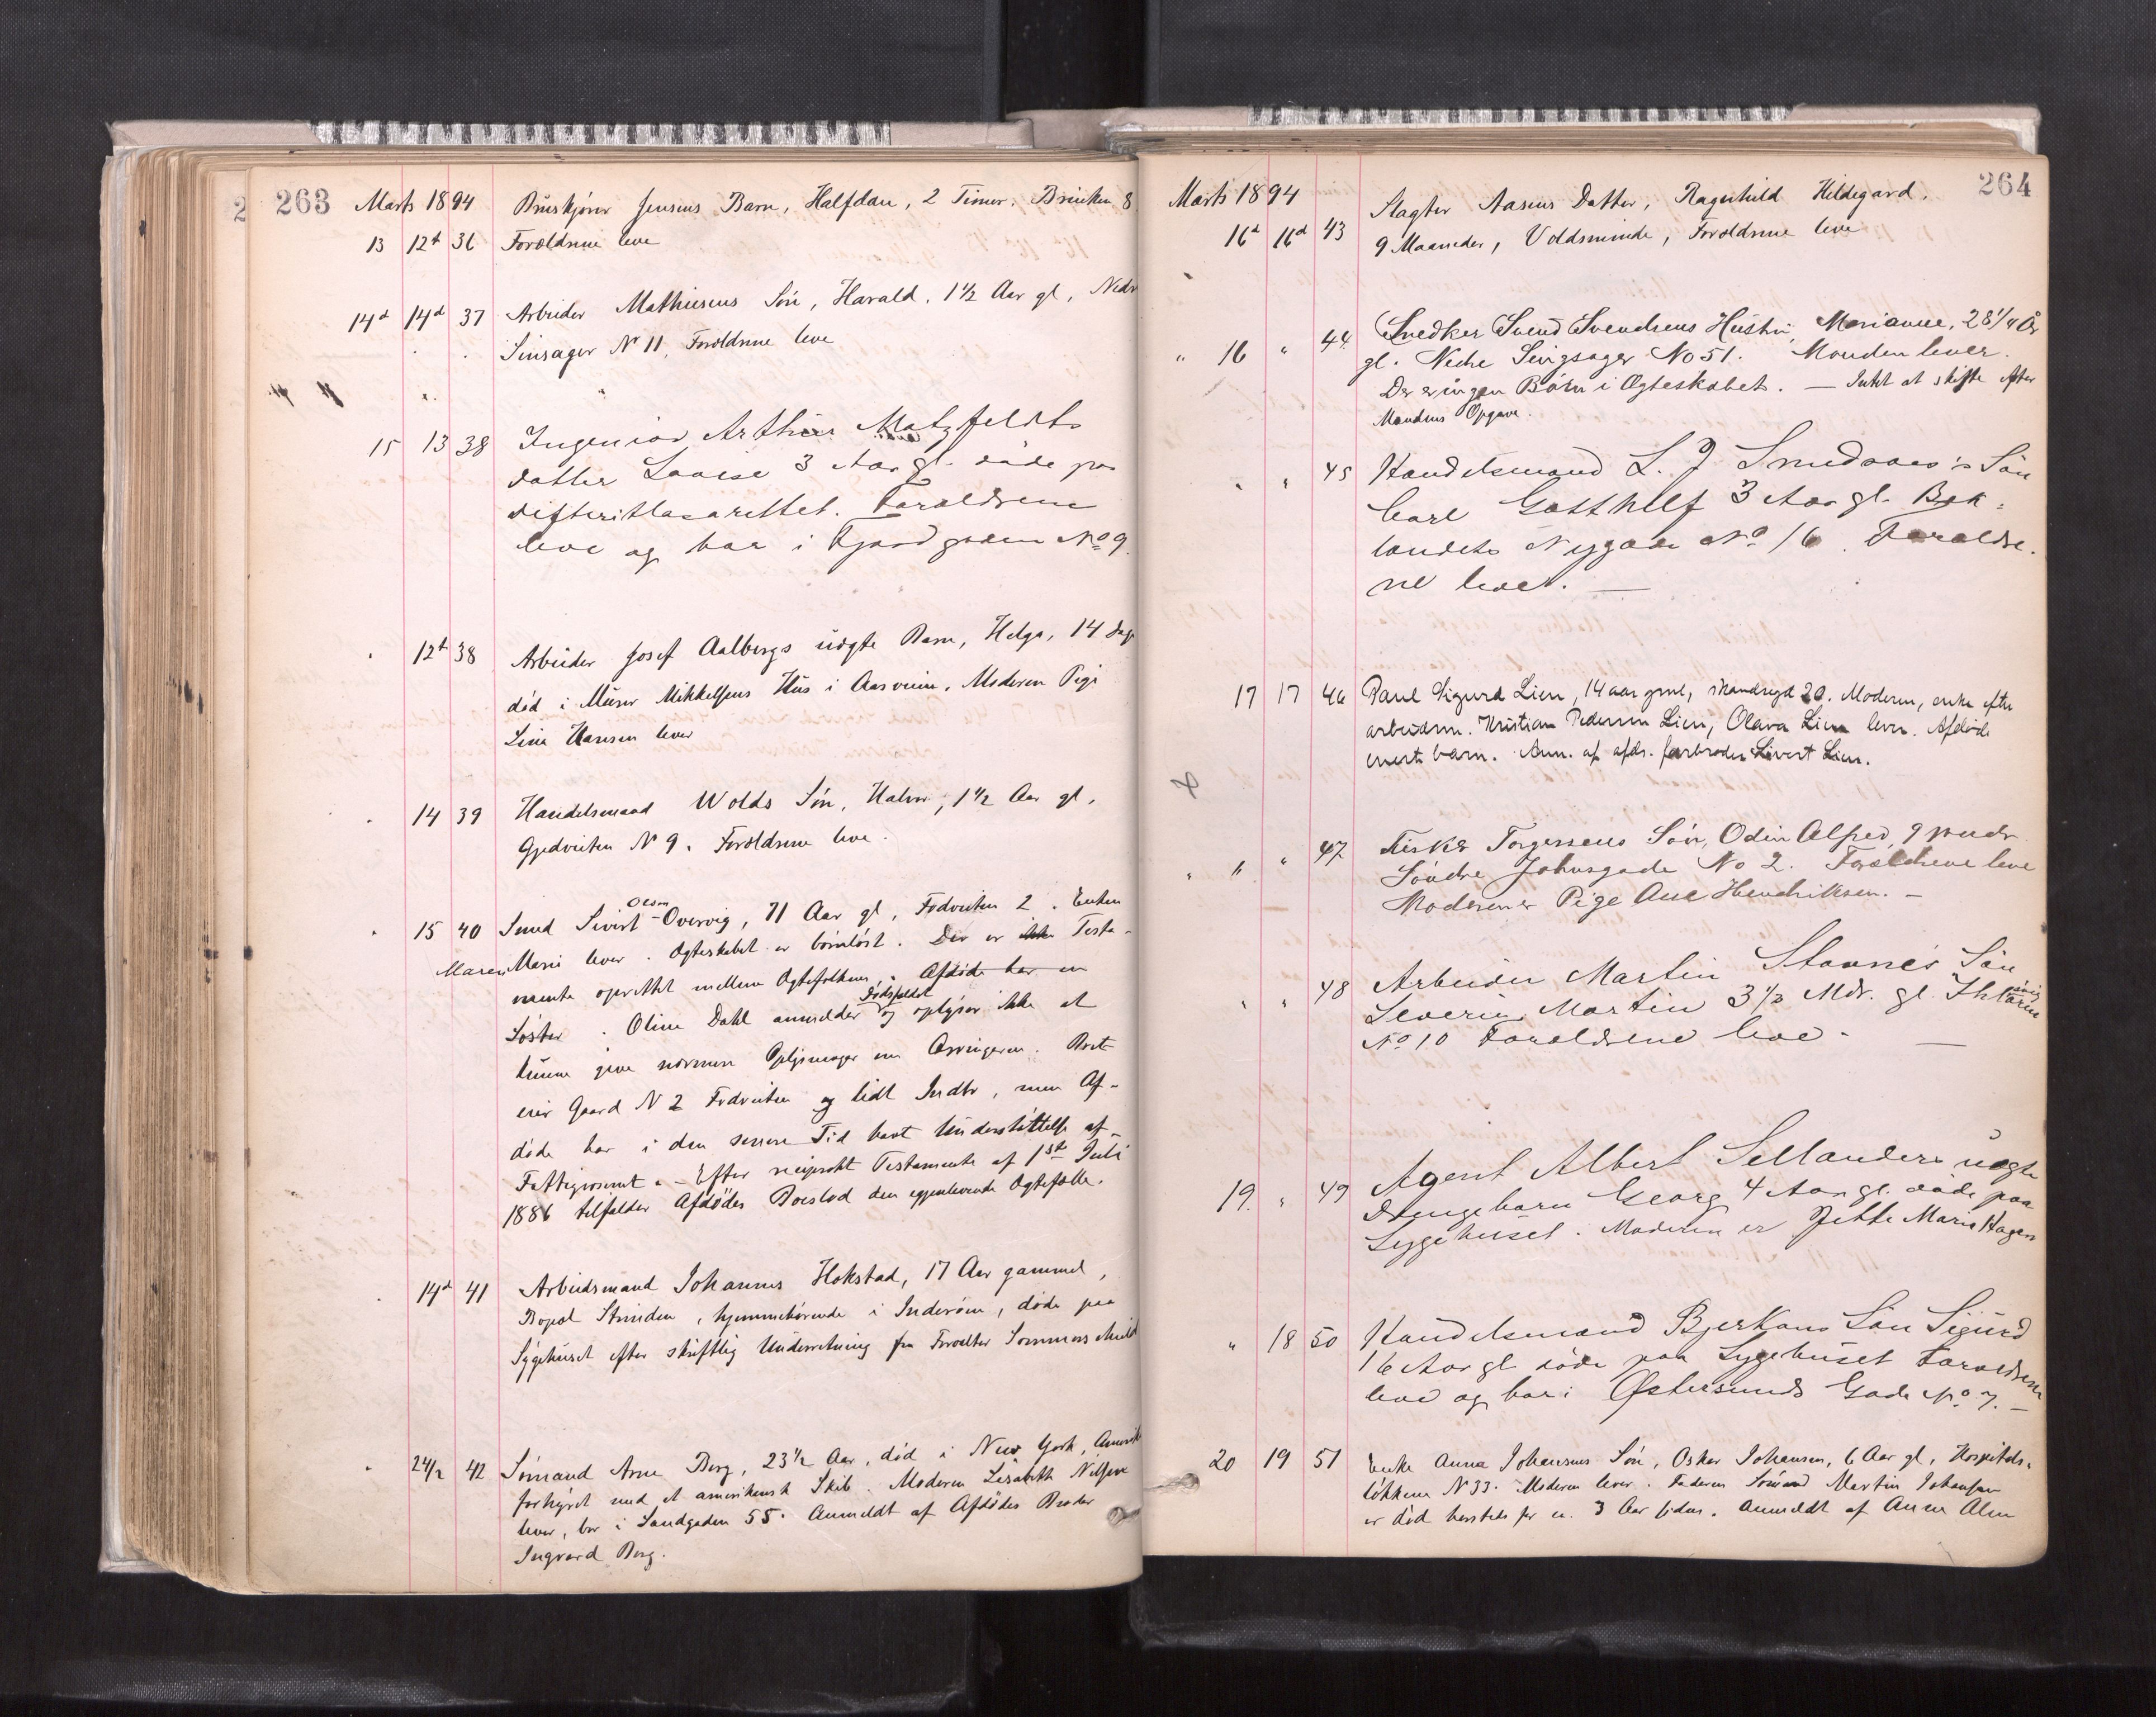 263 Marts 1894 Brüskjører Jensens Barn, Halfdan, 2 Timer. Brinken 8.
13 12t 36 Forældrene leve
14d 14d 37 Arbeider Mathiesens Søn, Harald, 1½ Aar gl, Nedr
Sinsager N 11, Forældrene leve
15 13 38 Ingeniør Arthur Motzfeldts
datter Lovise 3 Aar gl. døde paa
difteritlasarettet. Forældrene
leve og boe i Fjordgaden No 9.
" 12t 38 Arbeider Josef Aalbergs üægte Barn, Helga, 14 Dage
død i Mürer Mikkelsens Hüs i Aasveien. Moderen Pige
Line Hansen lever
" 14 39 Handelsmand Wolds Søn, Halvor, 1½ Aar gl,
Gjedveiten N 9. Forældrene leve.
" 15 40 Smed Sivert Olsen Overvig, 71 Aar gl, Fodveiten 2. Enken
Maren Marie lever. Ægteskabet er børnløst. Der er ikke Testa-
mente oprettet mellem Ægtefolkene. Afdøde har en
Søster. Oline Dahl anmelder Dødsfaldet og oplyser ikke at
kunne give nærmere Oplysninger om Arvingerne. Boet
eier Gaard N 2 Fodveiten og lidt Indbo, men Af-
døde har i den senere Tid havt Understøttelse af
Fattigvæsenet. - Efter reciprokt Testamente af 1ste Juli
1886 tilfalder Afdødes Boeslod den gjenlevende Ægtefælle.
" 14d 41 Arbeidsmand Johannes Hokstad, 17 Aar gammel,
Bopæl Strinden, hjemmehørende i Inderøen, døde paa
Sygehuset efter skriftlig Underretning fra Forvalter Sommerschield
" 24/2 42 Sømand Arne Berg, 23½ Aar, død i New York, Amerik
forhyret med et amerikansk Skib. Moderen Lisabeth Nilsen
lever, bor i Sandgaden 55. Anmeldt af Afdødes Broder
Ingvard Berg.
Marts 1894 264
Slagter Aasens Datter, Ragnhild Hildegard,
16d 16d 43 9 Maaneder, Voldsminde, Forældrene leve
" 16 " 44 Snedker Svend Svendsens Hustru, Marianne, 28 1/4 År
gl. Nedre Singsager No 51. Manden lever.
Der er ingen Børn i Ægteskabet. — Intet at skifte efter
Mandens Opgave.
" " 45 Handelsmand L. J. Smedaaes's Søn
Carl Gotthilf 3 Aar gl. Bak-
landets Nygade No 16. Forældre-
ne lever. —
17 17 46 Paul Sigurd Lien, 14 aar gml, strandvgd 20. Moderen, enke efter
arbeidsm. Kristian Pedersen Lien, Olava Lien lever. Afdøde
eneste barn. Anm. af afds. farbroder Sivert Lien.
" " " 47. Fisker Torgersens Søn, Odin Alfred, 9 mndr
Søndre Johnsgade No 2. Forældrene leve
Moderen er Pige Ane Hendriksen. —
" " 48 Arbeider Martin Stavnes Søn
Severin Martin 3 1/2 Mdr. gl.
No 10 Forældrene leve. —
19. " 49 Agent Albert Sellanders üægte
Drengebarn Georg 4 Aar gl. døde paa
Sygehuset. Moderen er Jette Marie Hagen
" 18 50 Handelsmand Bjerkans Søn Sigurd
16 Aar gl døde paa Sygehuset Forældrene
leve og bor i Østersunds Gade No 7. —
20 19 51 Enke Anna Johansens Søn, Oskar Johansen, 6 Aar gl, Hospitals-
løkken N 33. Moderen lever. Faderen Sømand Martin Johansen
er død herstedts for ca. 3 Aar siden. Anmeldt af Anna Alm